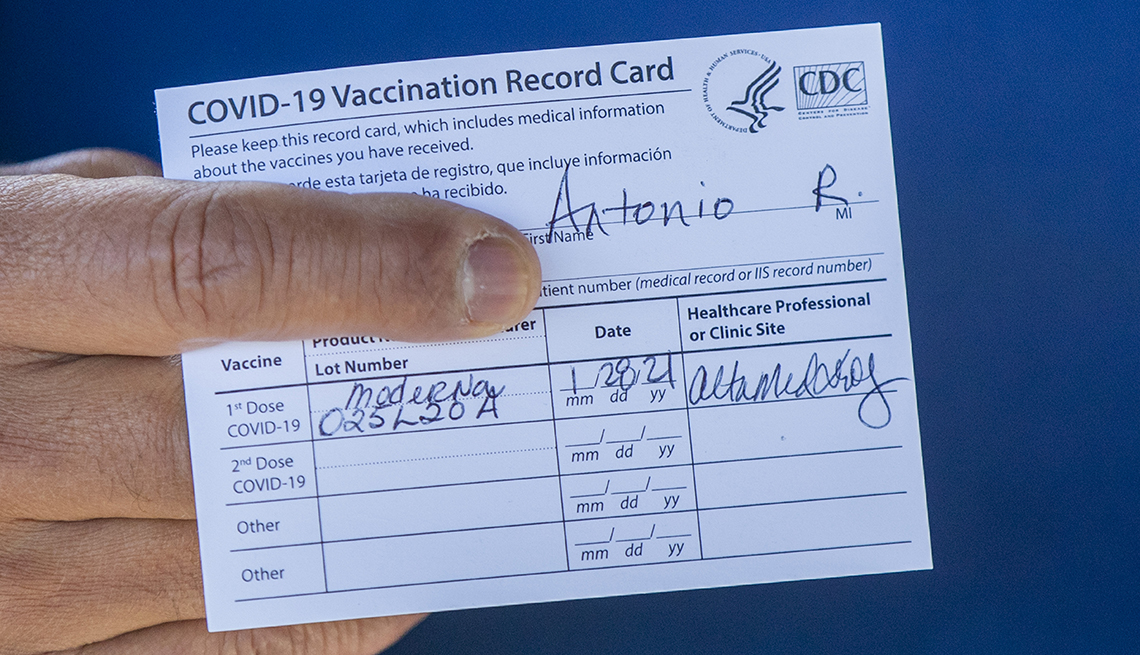 COVID-19 Vaccination Record Card
DEPARTMENT OF HEALTH & HUMAN SERVICES·USA
CDC
CENTERS FOR DISEASE
CONTROL AND PREVENTION
Please keep this record card, which includes medical information
about the vaccines you have received.
esta tarjeta de registro, que incluye información
ha recibido.
Antonio R.
First Name MI
number (medical record or IIS record number)
Vaccine
Lot Number
Date
Healthcare Professional
or Clinic Site
1st Dose
COVID-19
Moderna
025L20A
1/28/21
mm dd yy
2nd Dose
COVID-19
__/__/__
mm dd yy
Other
__/__/__
mm dd yy
Other
__/__/__
mm dd yy